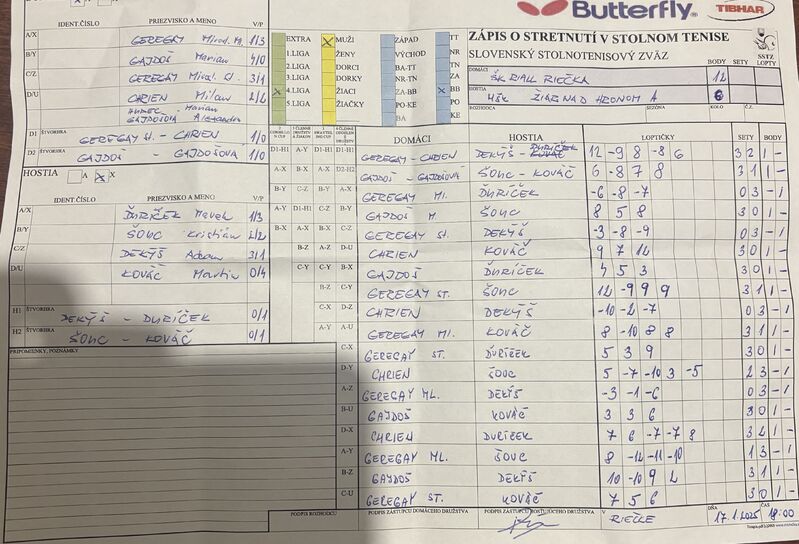 Butterfly
TIBHAR
ZÁPIS O STRETNUTÍ V STOLNOM TENISE
SLOVENSKÝ STOLNOTENISOVÝ ZVÄZ
SSTZ
LOPTY
DOMÁCI ŠK RIAL RIEČKA BODY 12 SETY LOPTY
HOSTIA ŽIAR NAD HRONOM A 6
ROZHODCA SEZÓNA KOLO Č.Z.
IDENT.ČÍSLO PRIEZVISKO A MENO V/P
A/X GEREGAY Mirosl. Ml. 1/3
B/Y GAJDOŠ Marian 4/0
C/Z GEREGAY Mirosl. st. 3/1
D/U CHRIEN Milan 2/2
D1 ŠTVORHRA GEREGAY st. - CHRIEN 1/0
D2 ŠTVORHRA GAJDOŠ - GAJDOŠOVÁ 1/0
HOSTIA A X
IDENT.ČÍSLO PRIEZVISKO A MENO V/P
A/X ĎURÍČEK Marek 1/3
B/Y ŠOUC Kristián 2/2
C/Z DEKÝŠ Adam 3/1
D/U KOVÁČ Martin 0/4
H1 ŠTVORHRA DEKÝŠ - ĎURÍČEK 0/1
H2 ŠTVORHRA ŠOUC - KOVÁČ 0/1
PRIPOMIENKY, POZNÁMKY
EXTRA MUŽI ZÁPAD TT
1.LIGA ŽENY VÝCHOD NR
2.LIGA DORCI BA-TT TN
3.LIGA DORKY NR-TN ZA
4.LIGA ŽIACI ZA-BB BB
5.LIGA ŽIAČKY PO-KE PO
BA KE
DOMÁCI HOSTIA LOPTIČKY SETY BODY
D1-H1 A-Y D1-H1 D1-H1 GEREGAY - CHRIEN DEKÝŠ - ĎURÍČEK 12 -9 8 -8 6 3 2 1 -
A-X B-X A-X D2-H2 GAJDOŠ - GAJDOŠOVÁ ŠOUC - KOVÁČ 6 -8 7 8 3 1 1 -
B-Y C-Z B-Y A-X GEREGAY Ml. ĎURÍČEK -6 -8 -7 0 3 - 1
A-Y D1-H1 C-Z B-Y GAJDOŠ M. ŠOUC 8 5 8 3 0 1 -
B-X A-X B-X C-Z GEREGAY st. DEKÝŠ -3 -8 -9 0 3 - 1
B-Z A-Z D-U CHRIEN KOVÁČ 9 7 12 3 0 1 -
C-Y C-Y B-X GAJDOŠ ĎURÍČEK 4 5 3 3 0 1 -
B-Z C-Y GEREGAY ST. ŠOUC 12 -9 9 9 3 1 1 -
C-X D-Z CHRIEN DEKÝŠ -10 -2 -7 0 3 - 1
A-Y A-U GEREGAY Ml. KOVÁČ 8 -10 8 8 3 1 1 -
C-X GEREGAY ST. ĎURÍČEK 5 3 9 3 0 1 -
D-Y CHRIEN ŠOUC 5 -7 -10 3 -5 2 3 - 1
A-Z GEREGAY ML. DEKÝŠ -3 -1 -6 0 3 - 1
B-U GAJDOŠ KOVÁČ 3 3 6 3 0 1 -
D-X CHRIEN DURÍČEK 7 6 -7 -7 8 3 2 1 -
A-Y GEREGAY ML. ŠOUC 8 -12 -11 -10 1 3 - 1
B-Z GAJDOŠ DEKÝŠ 10 -10 9 2 3 1 1 -
C-U GEREGAY ST. KOVÁČ 7 5 6 3 0 1 -
PODPIS ROZHODCU PODPIS ZÁSTUPCU DOMÁCEHO DRUŽSTVA PODPIS ZÁSTUPCU HOSŤUJÚCEHO DRUŽSTVA V RIEČKE DŇA 17.1.2025 18:00